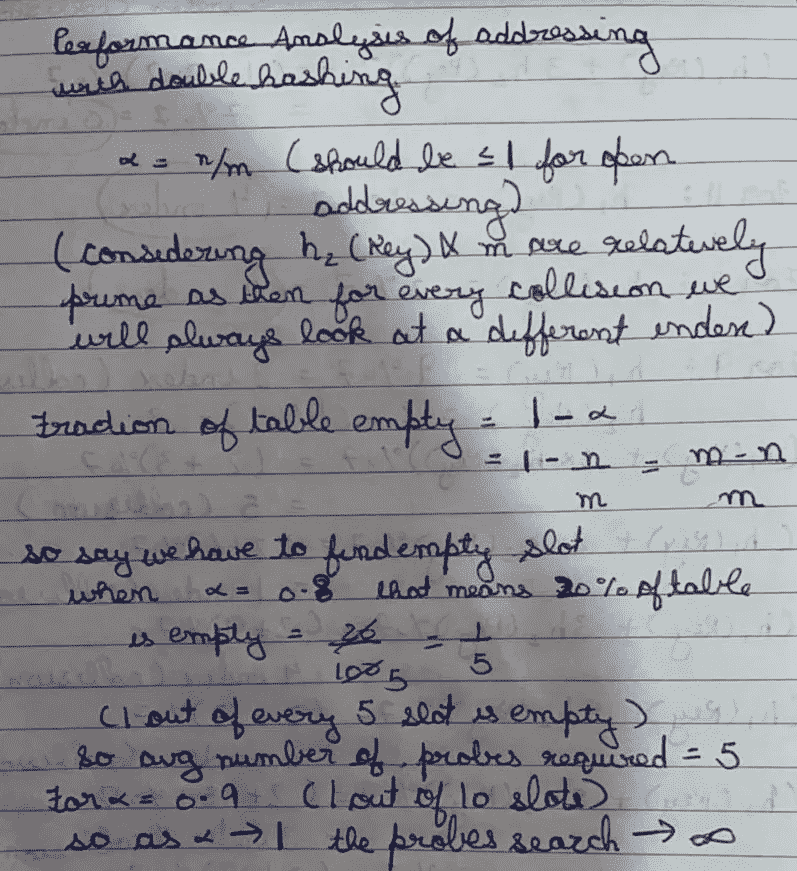 Performance Analysis of addressing
with double hashing
α = n/m (should be ≤ 1 for open
addressing)
(considering h₂ (Key) & m are relatively
prime as then for every collision we
will always look at a different index)
Fraction of table empty = 1 - α
= 1 - n/m = m - n/m
so say we have to find empty slot
when α = 0.8 that means 20% of table
is empty = 20/100 5 = 1/5
(1 out of every 5 slot is empty)
So avg number of probes required = 5
For α = 0.9 (1 out of 10 slots)
so as α → 1 the probes search → ∞